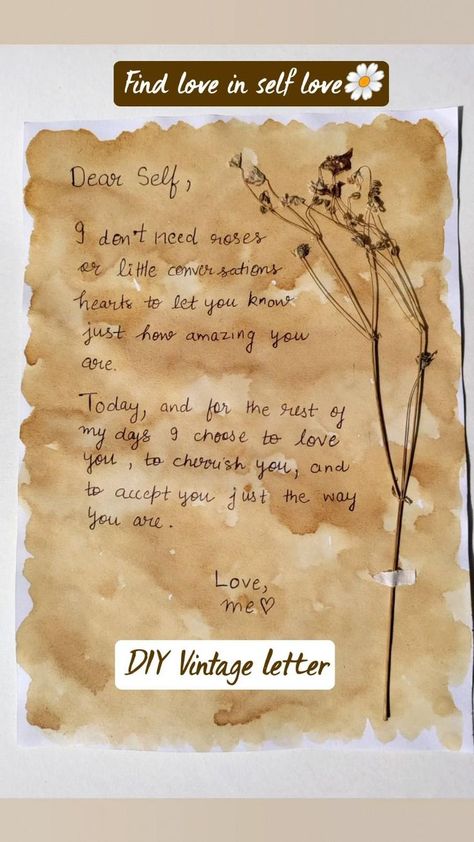 Find love in self love🌼
Dear Self,
I don't need roses
or little conversations
hearts to let you know
just how amazing you
are.
Today, and for the rest of
my days I choose to love
you, to cherrish you, and
to accept you just the way
you are.
Love,
me♡
DIY Vintage letter